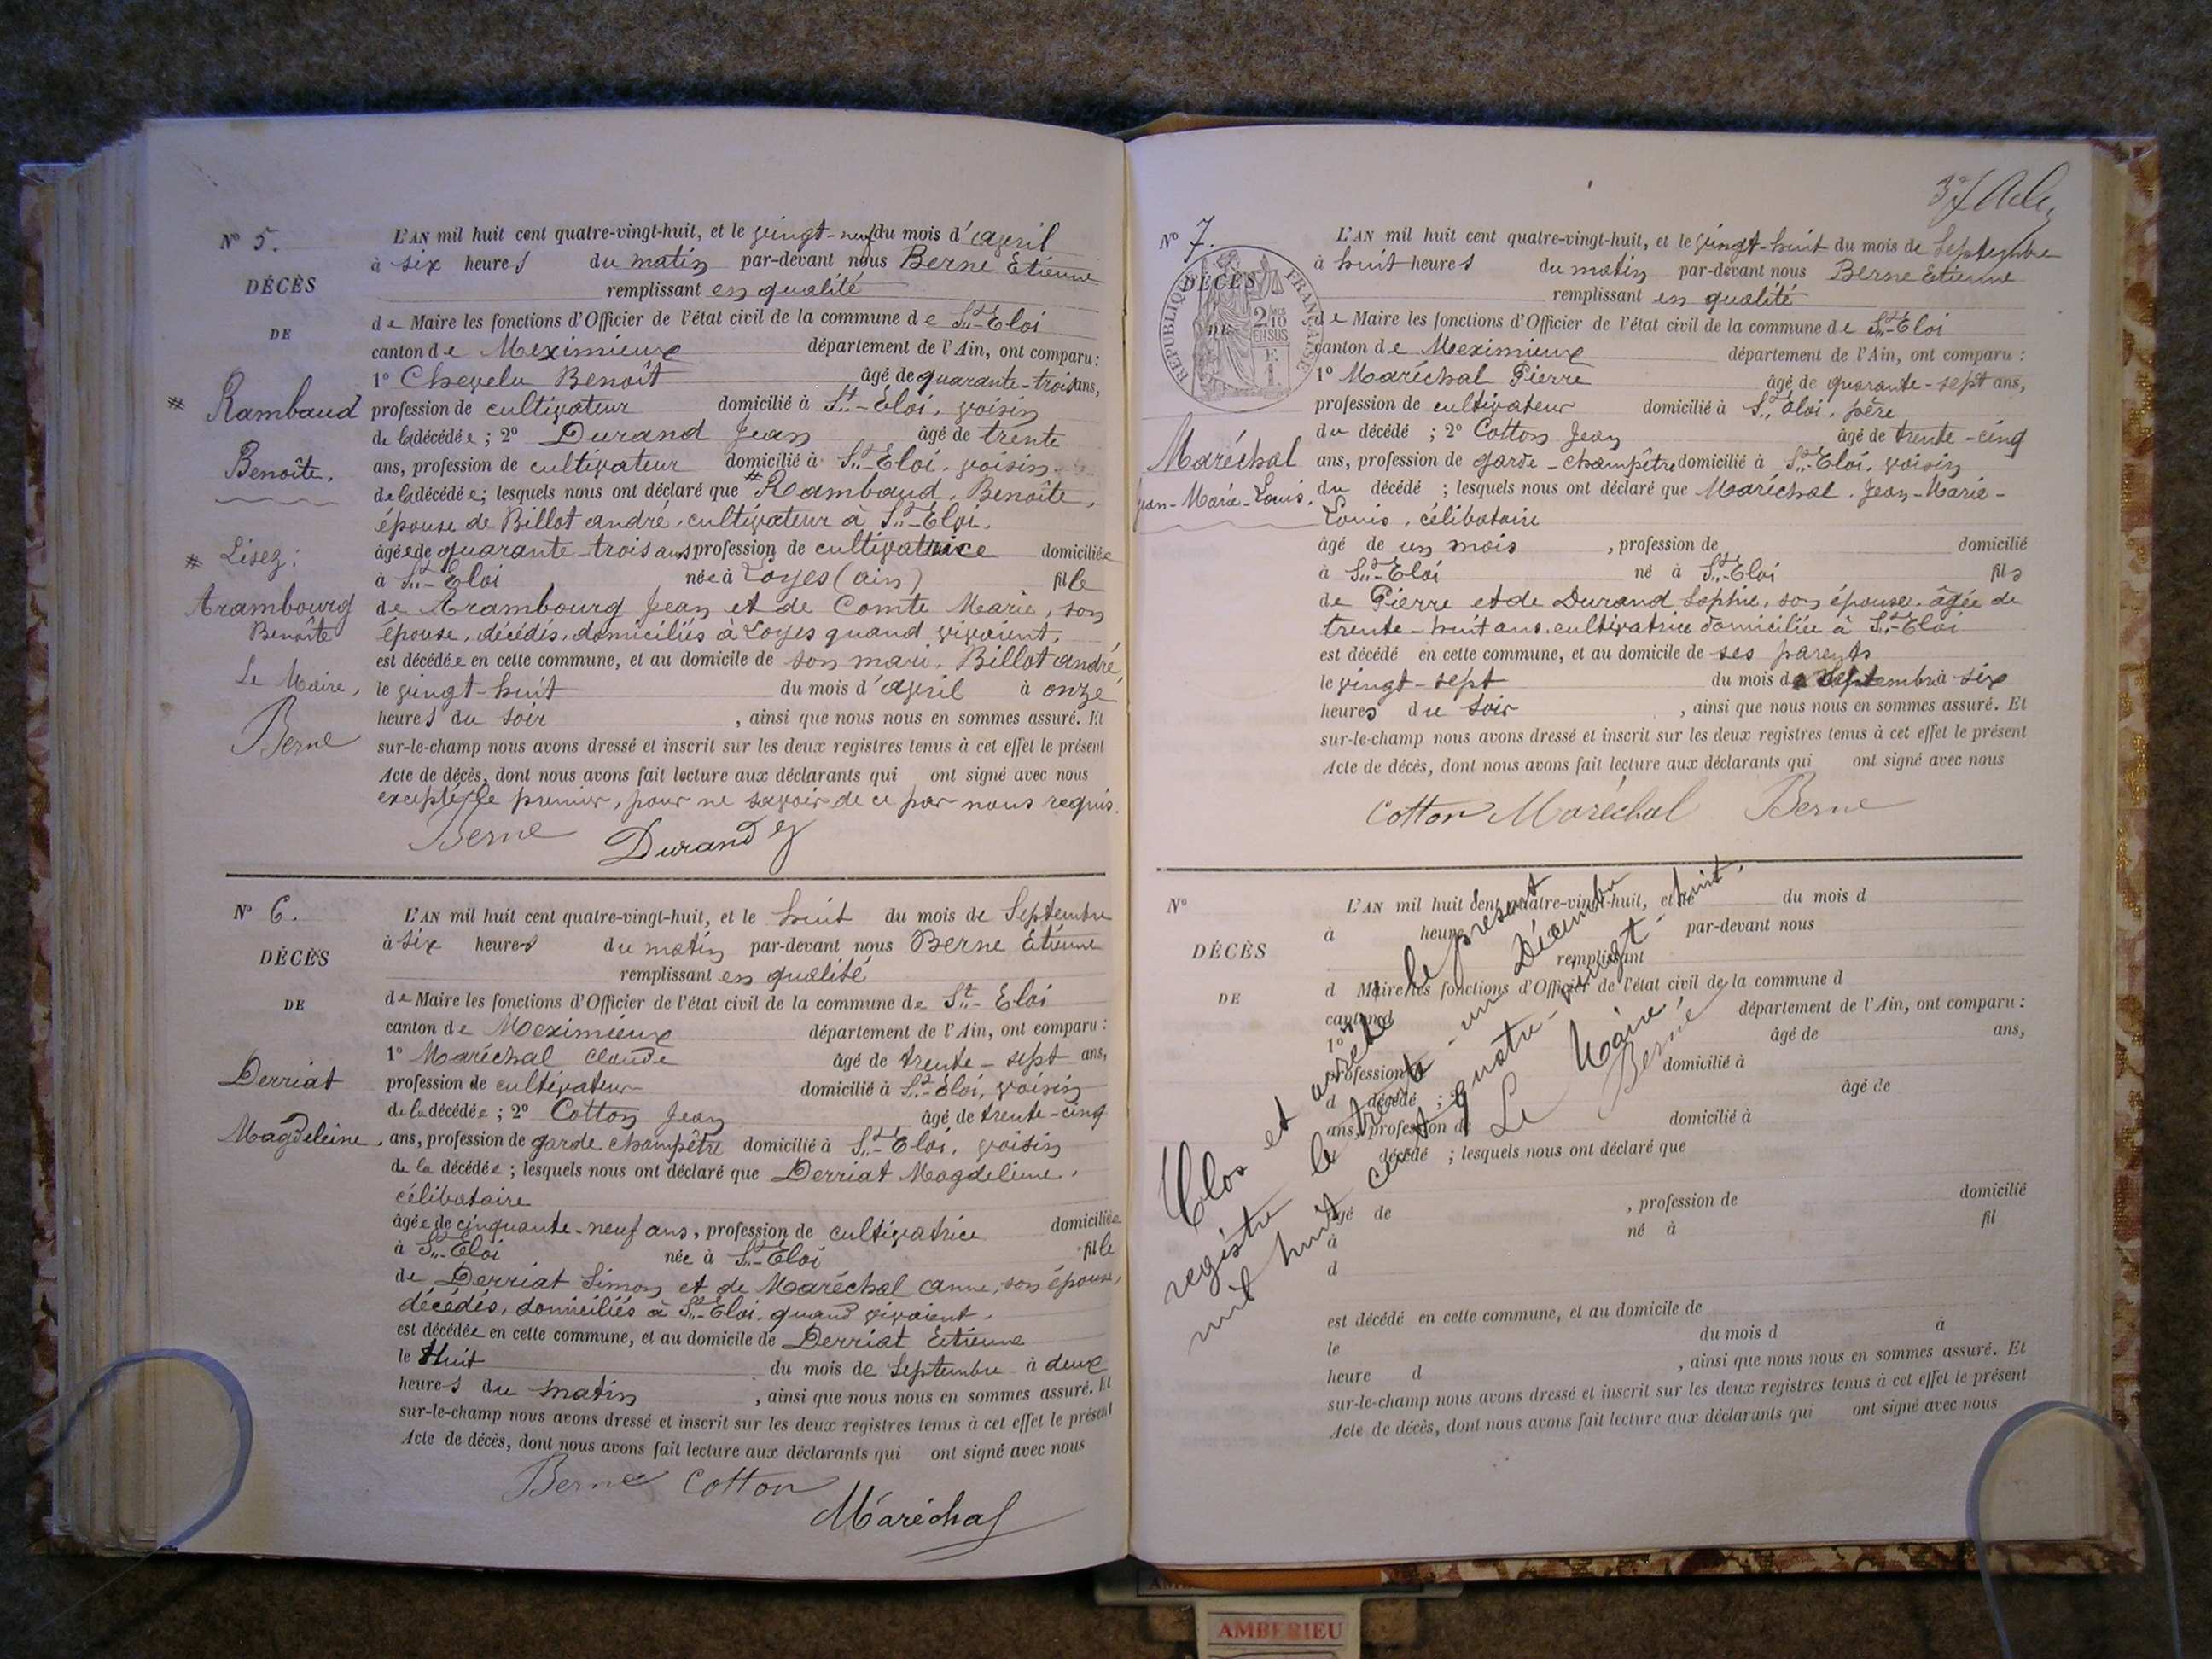 N° 5.
DÉCÈS
DE
# Rambaud
Benoîte.
# Lisez:
Arambourg
Benoîte
Le Maire,
Berne
L'AN mil huit cent quatre-vingt-huit, et le vingt-neuf du mois d'avril
à six heures du matin par-devant nous Berne Etienne
remplissant en qualité
de Maire les fonctions d'Officier de l'état civil de la commune de St-Eloi
canton de Meximieux département de l'Ain, ont comparu :
1° Chevelu Benoît âgé de quarante-trois ans,
profession de cultivateur domicilié à St-Eloi, voisin
de la décédée ; 2° Durand Jean âgé de trente
ans, profession de cultivateur domicilié à St-Eloi, voisin
de la décédée ; lesquels nous ont déclaré que # Rambaud, Benoîte,
épouse de Billot andré, cultivateur à St-Eloi.
âgée de quarante-trois ans profession de cultivatrice domiciliée
à St-Eloi née à Loyes (ain) fille
de Arambourg Jean et de Comte Marie, son
épouse, décédés, domiciliés à Loyes quand vivaient.
est décédée en cette commune, et au domicile de son mari, Billot andré,
le vingt-huit du mois d'avril à onze
heures du soir , ainsi que nous nous en sommes assuré. Et
sur-le-champ nous avons dressé et inscrit sur les deux registres tenus à cet effet le présent
Acte de décès, dont nous avons fait lecture aux déclarants qui ont signé avec nous
excepté le premier, pour ne savoir de ce par nous requis.
Berne Durand
N° 6.
DÉCÈS
DE
Derriat
Magdeleine.
L'AN mil huit cent quatre-vingt-huit, et le huit du mois de Septembre
à six heures du matin par-devant nous Berne Etienne
remplissant en qualité
de Maire les fonctions d'Officier de l'état civil de la commune de St-Eloi
canton de Meximieux département de l'Ain, ont comparu :
1° Maréchal claude âgé de trente-sept ans,
profession de cultivateur domicilié à St-Eloi, voisin
de la décédée ; 2° Cotton Jean âgé de trente-cinq
ans, profession de garde champêtre domicilié à St-Eloi, voisin
de la décédée ; lesquels nous ont déclaré que Derriat Magdeleine,
célibataire
âgée de cinquante-neuf ans, profession de cultivatrice domiciliée
à St-Eloi née à St-Eloi fille
de Derriat Simon et de Maréchal anne, son épouse,
décédés, domiciliés à St-Eloi, quand vivaient.
est décédée en cette commune, et au domicile de Derriat Etienne
le Huit du mois de Septembre à deux
heures du matin , ainsi que nous nous en sommes assuré. Et
sur-le-champ nous avons dressé et inscrit sur les deux registres tenus à cet effet le présent
Acte de décès, dont nous avons fait lecture aux déclarants qui ont signé avec nous
Berne Cotton
Maréchal
N° 7.
DÉCÈS
DE
REPUBLIQUE FRANÇAISE
2/10 EN SUS
F. 1.
Maréchal
Jean-Marie-Louis.
L'AN mil huit cent quatre-vingt-huit, et le vingt-huit du mois de Septembre
à huit heures du matin par-devant nous Berne Etienne
remplissant en qualité
de Maire les fonctions d'Officier de l'état civil de la commune de St-Eloi
canton de Meximieux département de l'Ain, ont comparu :
1° Maréchal Pierre âgé de quarante-sept ans,
profession de cultivateur domicilié à St Eloi, père
du décédé ; 2° Cotton Jean âgé de trente-cinq
ans, profession de garde-champêtre domicilié à St-Eloi, voisin
du décédé ; lesquels nous ont déclaré que Maréchal, Jean-Marie-
Louis, célibataire
âgé de un mois , profession de domicilié
à St-Eloi né à St-Eloi fils
de Pierre et de Durand Sophie, son épouse, âgée de
trente-huit ans, cultivatrice domiciliée à St-Eloi
est décédé en cette commune, et au domicile de ses parents
le vingt-sept du mois de Septembre à six
heures du soir , ainsi que nous nous en sommes assuré. Et
sur-le-champ nous avons dressé et inscrit sur les deux registres tenus à cet effet le présent
Acte de décès, dont nous avons fait lecture aux déclarants qui ont signé avec nous
Cotton Maréchal Berne
N°
DÉCÈS
DE
L'AN mil huit cent quatre-vingt-huit, et le du mois d
à heure par-devant nous
remplissant
d Maire les fonctions d'Officier de l'état civil de la commune d
canton d département de l'Ain, ont comparu :
1° âgé de ans,
profession d domicilié à
d décédé ; 2° âgé de
ans, profession de domicilié à
d décédé ; lesquels nous ont déclaré que
âgé de , profession de domicilié
à né à fil
d
est décédé en cette commune, et au domicile de
le du mois d à
heure d , ainsi que nous nous en sommes assuré. Et
sur-le-champ nous avons dressé et inscrit sur les deux registres tenus à cet effet le présent
Acte de décès, dont nous avons fait lecture aux déclarants qui ont signé avec nous
Clos et arrêté le présent
registre le trente-un Décembre
mil huit cent quatre-vingt-huit.
Le Maire,
Berne
AMBERIEU